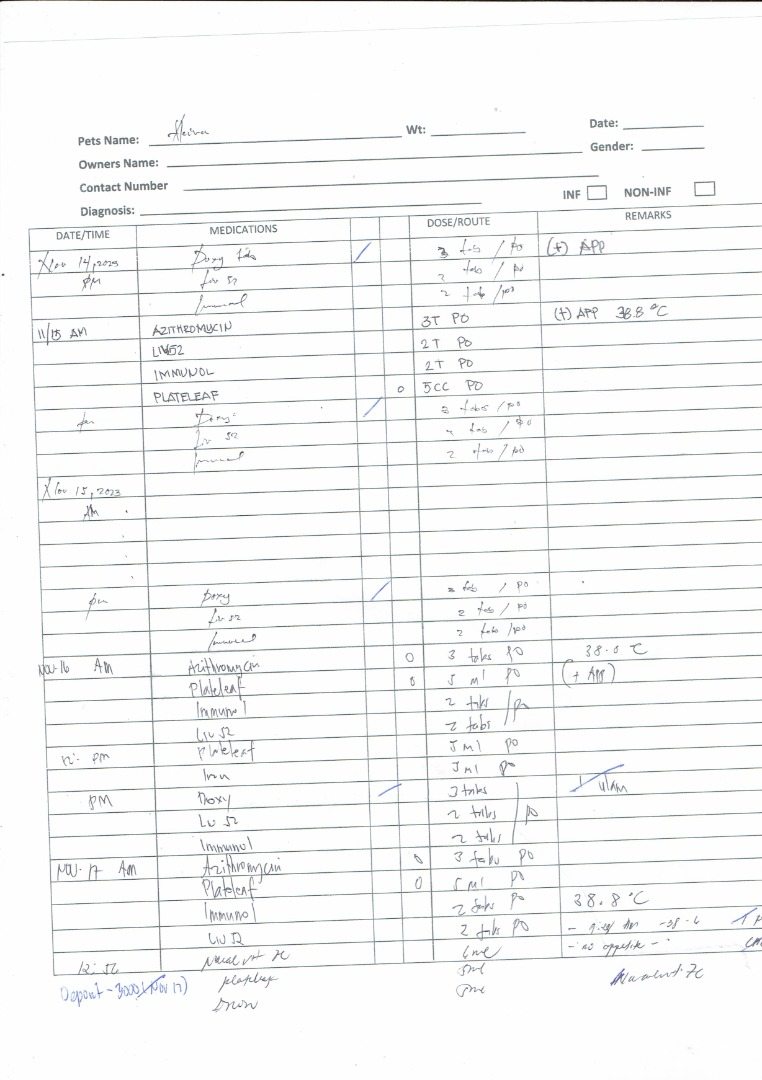 Pets Name: Wt: Date:
Owners Name: Gender:
Contact Number INF NON-INF
Diagnosis:
DATE/TIME MEDICATIONS DOSE/ROUTE REMARKS
Nov 14, 2023 Doxy tabs 3 tab / PO (+) APP
PM Liv 52 2 tab / PO
Immunol 2 tab / PO
11/15 AM AZITHROMYCIN 3T PO (+) APP 38.8 °C
LIV52 2T PO
IMMUNOL 2T PO
PLATELEAF 0 5CC PO
pm Doxy 3 tabs / PO
Liv 52 tab / PO
Immunol 2 tab / PO
Nov 15, 2023
AM
pm Doxy 3 tab / PO
Liv 52 2 tab / PO
Immunol 2 tab / PO
NOV 16 AM Azithromycin 0 3 tabs PO 38.0 °C
Plateleaf 0 5 ml PO (+ APP)
Immunol 2 tabs / PO
LIV 52 2 tabs
12: PM Plateleaf 5ml PO
Iron 5ml PO
PM Doxy 3 tabs ulam
LIV 52 2 tabs PO
Immunol 2 tabs
NOV. 17 AM Azithromycin 0 3 tabs PO
Plateleaf 0 5 ml PO
Immunol 2 tabs PO 38.8 °C
LIV 52 2 tabs PO
12: - no appetite -
Deposit - 3000 (Nov 17) plateleaf 5ml
Iron